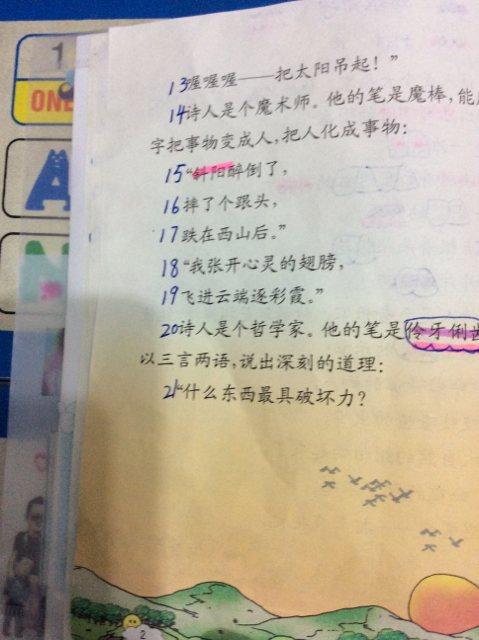 1
ONE
A
13喔喔喔——把太阳吊起！”
14诗人是个魔术师。他的笔是魔棒，能
字把事物变成人，把人化成事物：
15“斜阳醉倒了，
16摔了个跟头，
17跌在西山后。”
18“我张开心灵的翅膀，
19飞进云端逐彩霞。”
20诗人是个哲学家。他的笔是伶牙俐齿
以三言两语，说出深刻的道理：
21“什么东西最具破坏力？
2